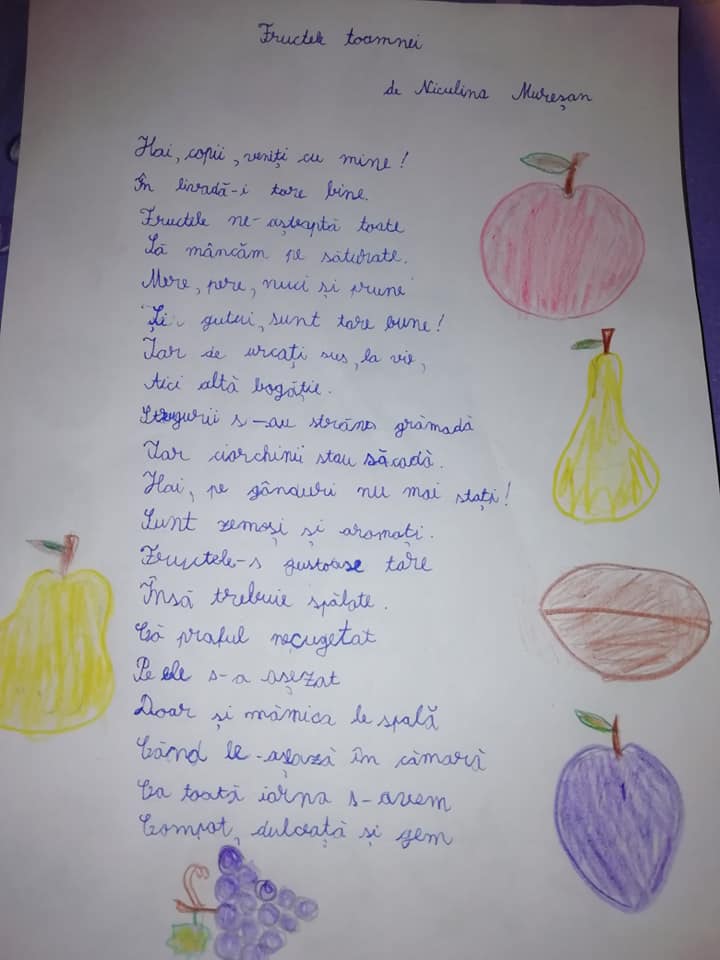 Fructele toamnei
de Niculina Mureșan
Hai, copii, veniți cu mine!
În livadă-i tare bine.
Fructele ne-așteaptă toate
Să mâncăm pe săturate.
Mere, pere, nuci și prune
Și gutui, sunt tare bune!
Iar de urcați sus, la vie,
Aici altă bogăție.
Strugurii s-au strâns grămadă
Iar ciorchinii stau să cadă.
Hai, pe gânduri nu mai stați!
Sunt zemoși și aromați.
Fructele-s gustoase tare
Însă trebuie spălate.
Că praful necugetat
Pe ele s-a așezat
Doar și mămica le spală
Când le-așază în cămară
Ca toată iarna s-avem
Compot, dulceață și gem